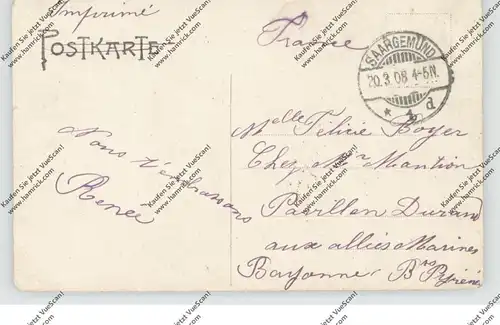 Imprimé
POSTKARTE
France
SAARGEMÜND
20.3.08 4-5N.
* 1 d
Nous t'embrassons
Renée
Melle Félicie Boyer
Chez Mr Mantion
Pavillon Durand
aux alliés Marines
Bayonne Bses Pyrénées
Kaufen Sie Jetzt VueScan!
(www.hamrick.com)